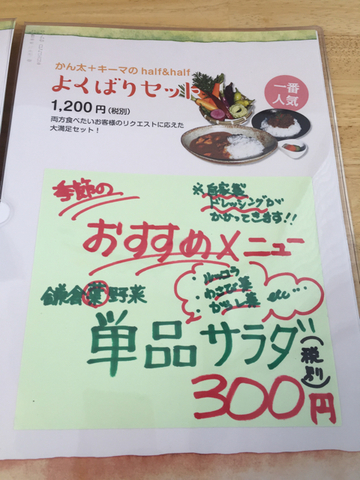 かん太+キーマのhalf&half
よくばりセット
一番
人気
1,200円(税別)
両方食べたいお客様のリクエストに応えた
大満足セット!
季節の
※自家製
ドレッシングが
かかってきます!!
おすすめメニュー
鎌倉葉野菜
・ルッコラ
・わさび菜
・からし菜 etc…
単品サラダ
(税別)
300円